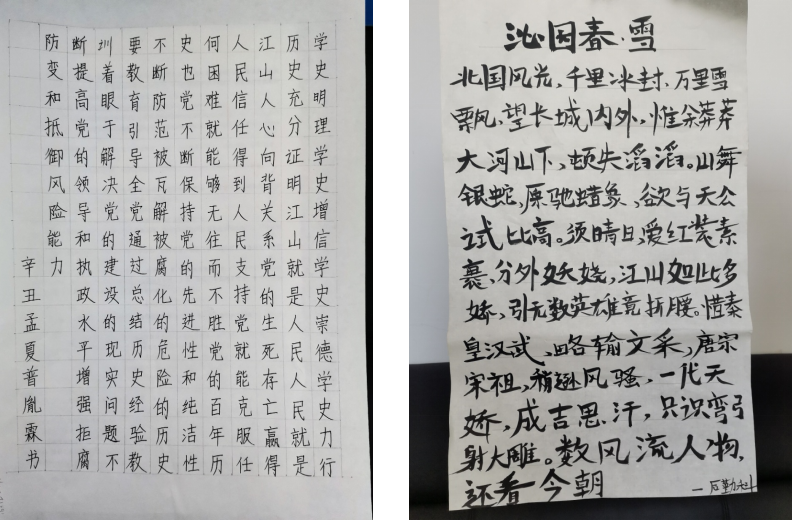 学史明理学史增信学史崇德学史力行
历史充分证明江山就是人民人民就是
江山人心向背关系党的生死存亡赢得
人民信任得到人民支持党就能克服任
何困难就能够无往而不胜党的百年历
史也党不断保持党的先进性和纯洁性
不断防范被瓦解被腐化的危险的历史
要教育引导全党通过总结历史经验教
圳着眼于解决党的建设的现实问题不
断提高党的领导和执政水平增强拒腐
防变和抵御风险能力
辛丑孟夏普胤霖书
沁园春·雪
北国风光,千里冰封,万里雪
飘,望长城内外,惟余莽莽
大河山下,顿失滔滔。山舞
银蛇,原驰蜡象,欲与天公
试比高。须晴日,爱红装素
裹,分外妖娆,江山如此多
娇,引无数英雄竞折腰。惜秦
皇汉武,略输文采,唐宗
宋祖,稍逊风骚,一代天
娇,成吉思汗,只识弯弓
射大雕。数风流人物,
还看今朝